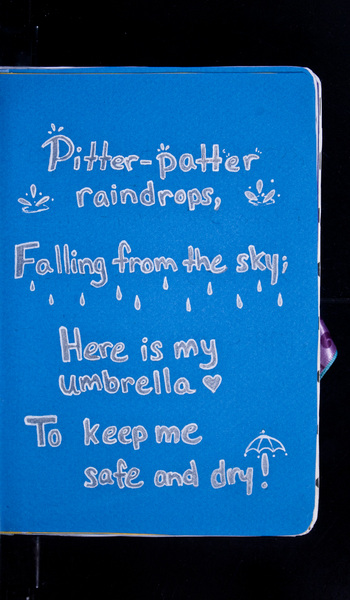 Pitter-patter
raindrops,
Falling from the sky;
Here is my
umbrella
To keep me
safe and dry!